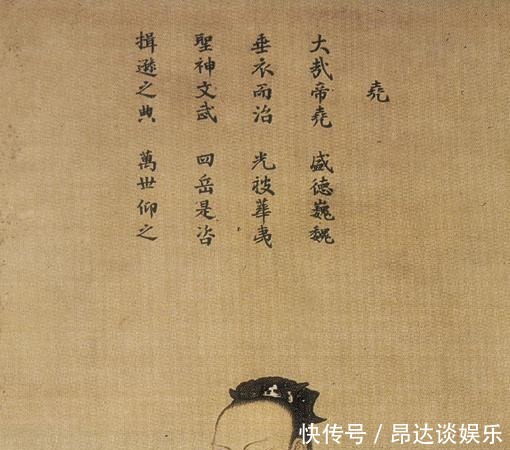 堯
大哉帝堯 盛德巍巍
垂衣而治 光被華夷
聖神文武 四岳是咨
揖遜之典 萬世仰之
快传号 / 昂达谈娱乐